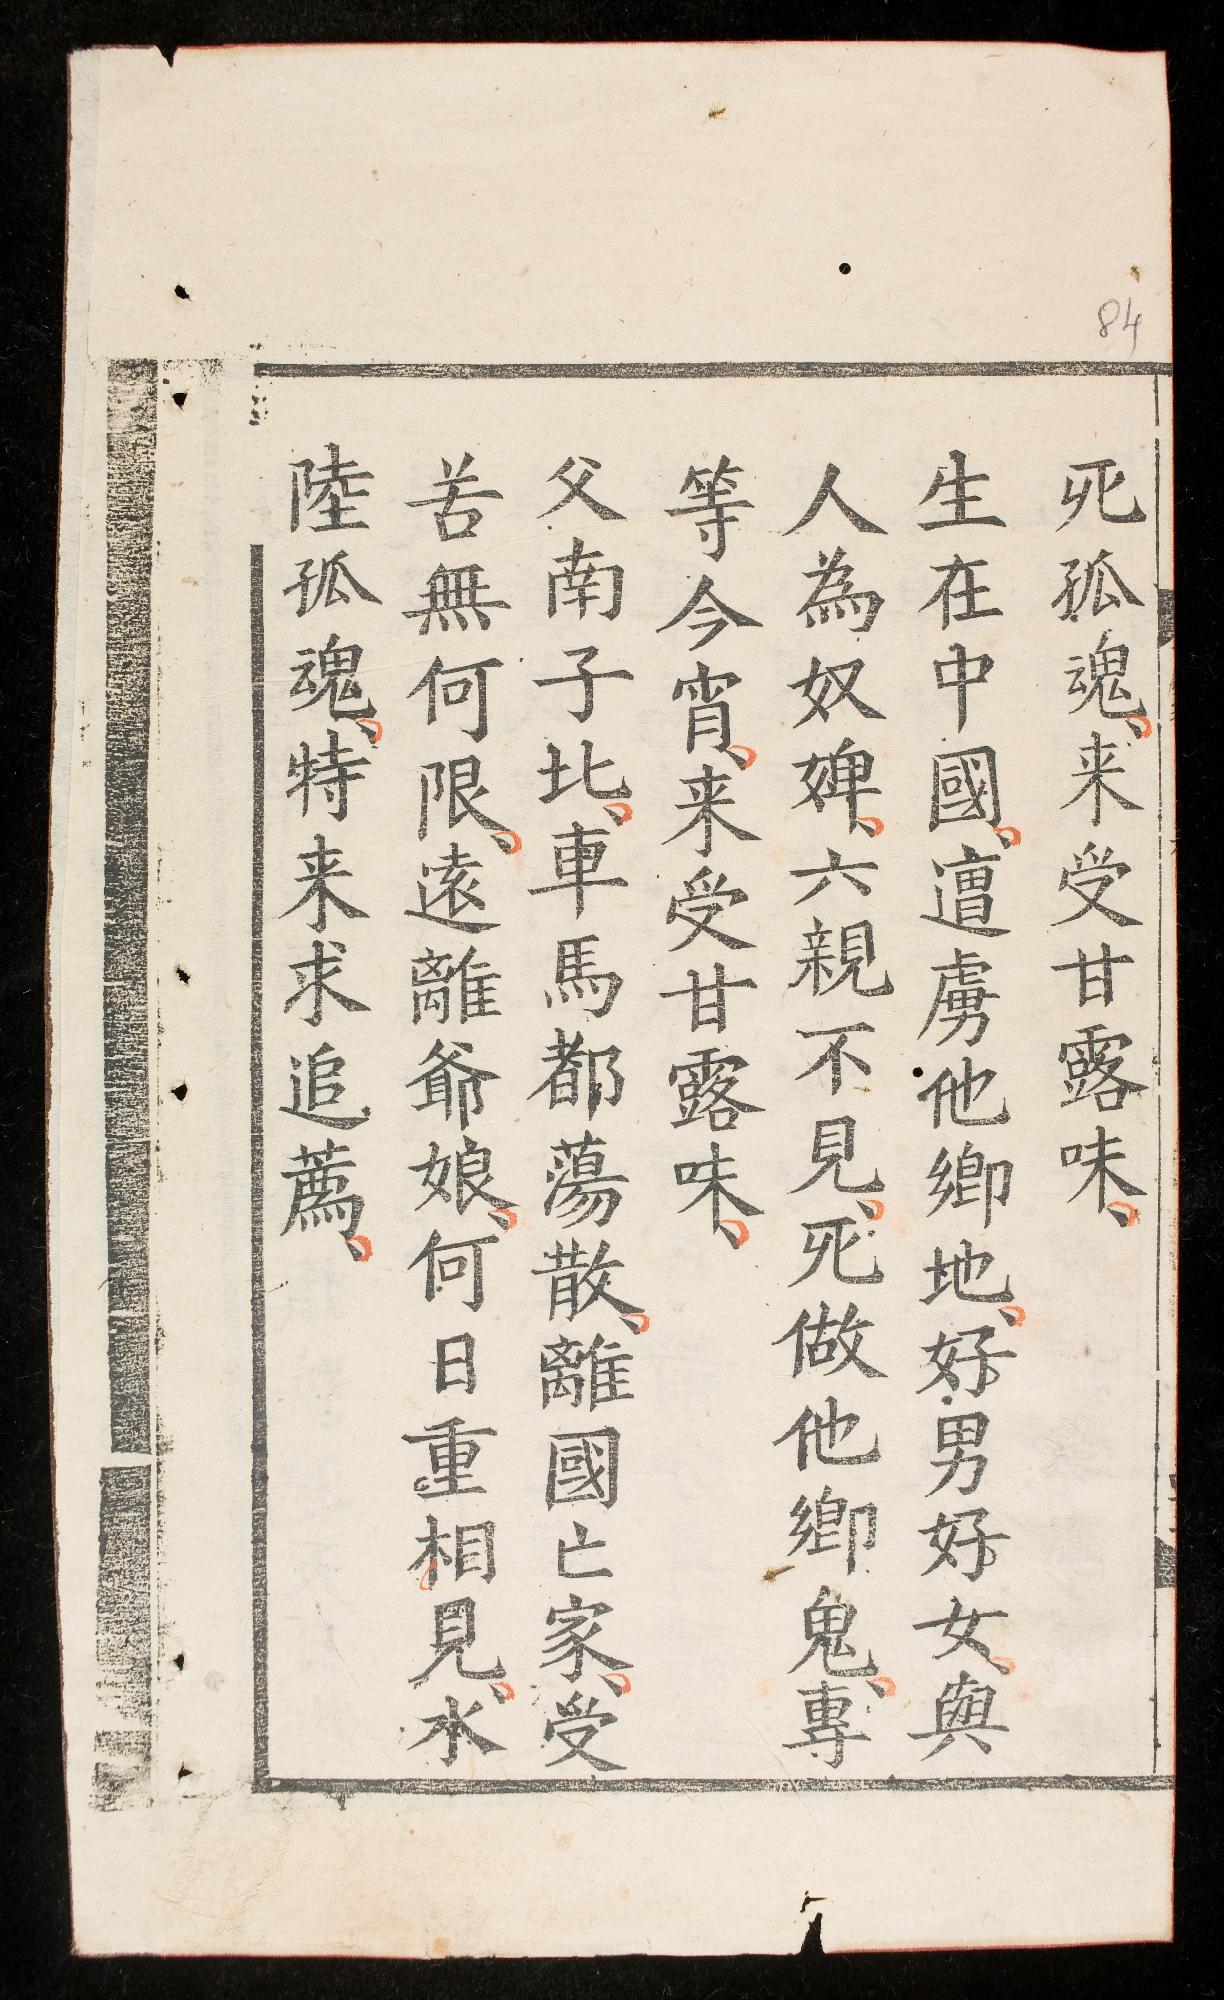 84
死孤魂、来受甘露味、
生在中國、遭虜他鄉地、好男好女、與
人為奴婢、六親不見、死做他鄉鬼、專
等今宵、来受甘露味、
父南子北、車馬都蕩散、離國亡家、受
苦無何限、遠離爺娘、何日重相見、水
陸孤魂、特来求追薦、